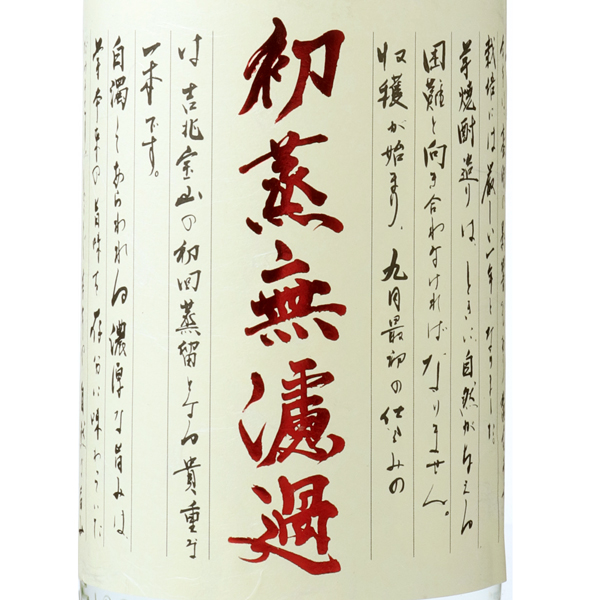 栽培には厳しい一年となりました
芋焼酎造りは、ときに自然が与える
困難と向き合わなければなりません。
収穫が始まり、九月最初の仕込みの
初蒸無濾過
は 吉兆宝山の初回蒸留となる貴重な
一本です。
白濁してあらわれる濃厚な旨みは、
芋本来の旨味を存分に味わういた